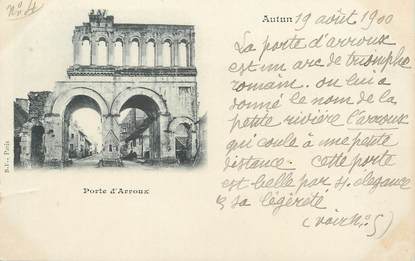 N°. 4
Autun 19 août 1900
La porte d'arroux
est un arc de triomphe
romain. on lui a
donné le nom de la
petite rivière l'arroux
qui coule à une petite
distance. Cette porte
est belle par s. elegance
& sa légéreté.
(voir N°. 5)
B.F., Paris
Porte d'Arroux